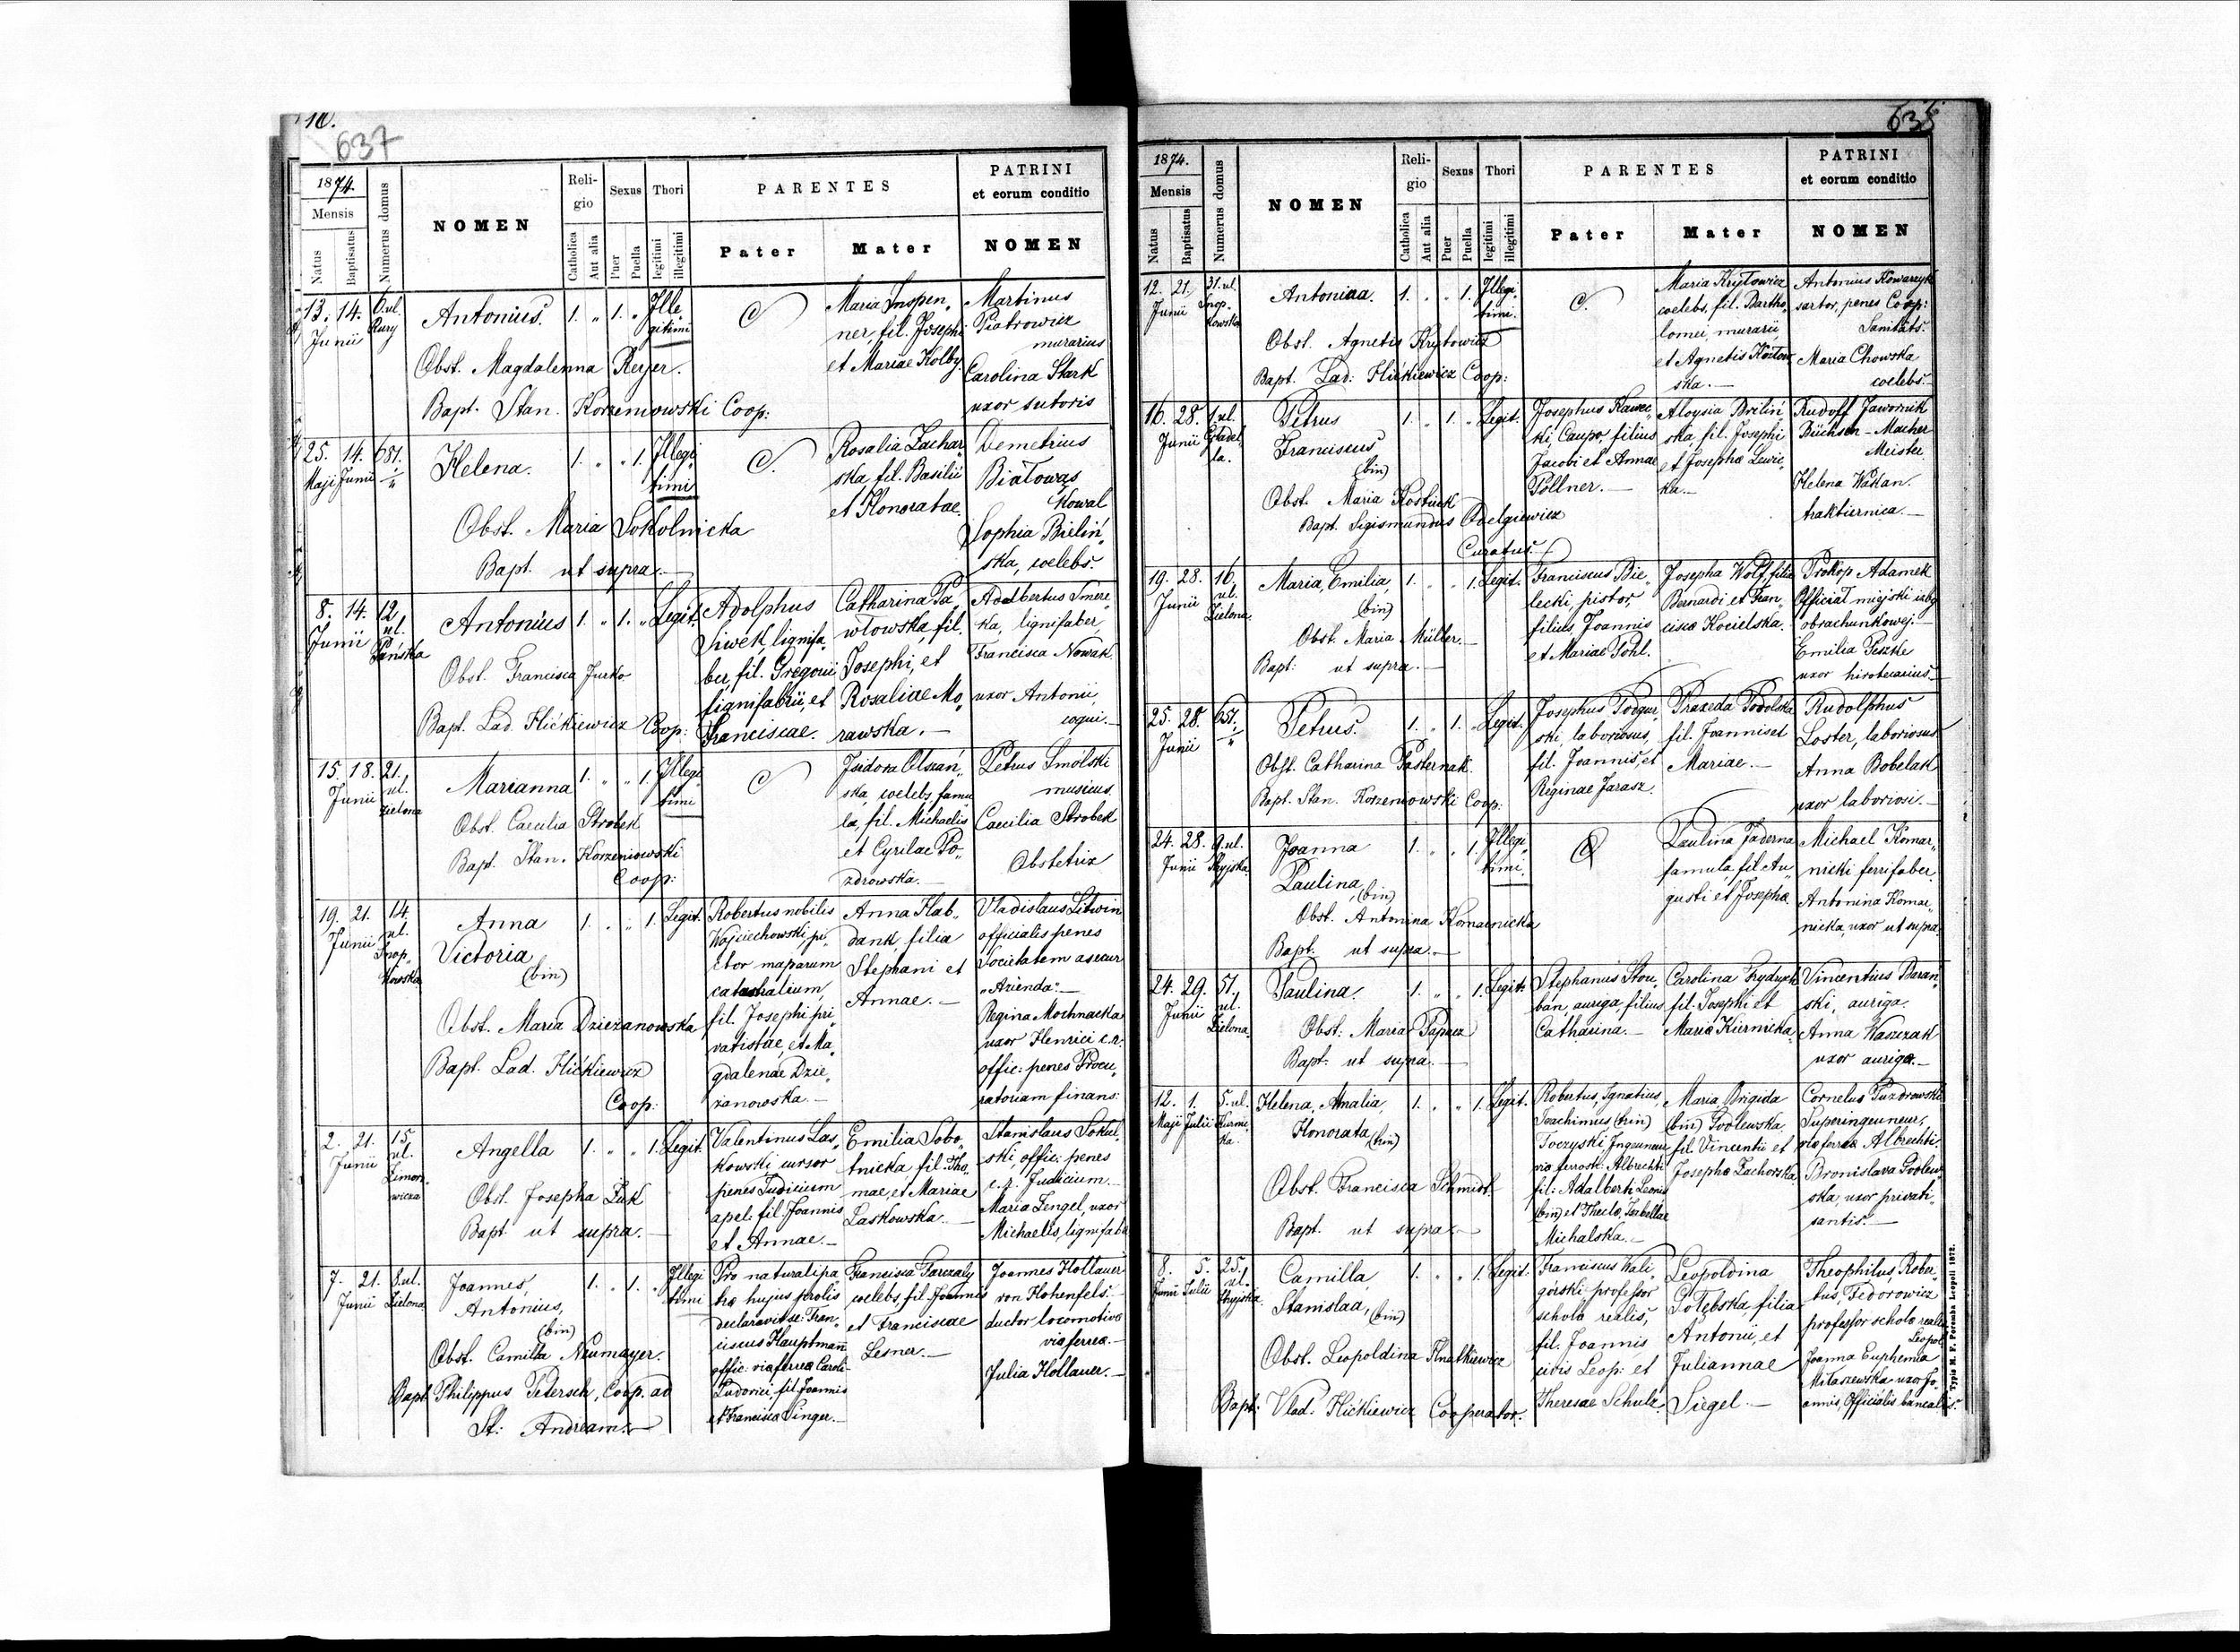 10.
637
1874.
Mensis
Natus
Baptisatus
Numerus domus
NOMEN
Religio
Catholica
Aut alia
Sexus
Puer
Puella
Thori
legitimi
illegitimi
PARENTES
Pater
Mater
PATRINI
et eorum conditio
NOMEN
13. 14. 6. ul.
Junii Rury
Antonius.
1. " 1. "
Ille
gitimi
Obst. Magdalenna Reyer.
Bapt. Stan. Korzeniowski Coop:
Maria Inspen„
ner, fil. Josephi
et Mariae Kolby.
Martinus
Piotrowicz
murarius
Carolina Stark
uxor sutoris
25. 14. 681.
Maji Junii
Helena.
1. " " 1.
Illegi
timi
Obst. Maria Sokolnicka
Bapt. ut supra.—
Rosalia Zachar„
ska fil. Basilii
et Honoratae.
Demetrius
Białowąs
Kowal
Sophia Bieliń„
ska, coelebs.
8. 14. 12
Junii ul.
Pańska
Antonius
1. " 1. " Legit.
Obst. Francisca Jurko
Bapt. Lad. Hićkiewicz Coop:
Adolphus
Siwek, lignifa„
ber, fil. Gregorii
lignifabrii, et
Franciscae.
Catharina Pa„
włowska, fil.
Josephi, et
Rosaliae Mo„
rawska.—
Adalbertus Smere„
ka, lignifaber
Francisca Nowak
uxor Antonii,
coqui.—
15. 18. 21.
Junii ul.
Zielona
Marianna
1. " " 1.
Illegi
timi
Obst. Caecilia Strobek
Bapt. Stan. Korzeniowski
Coop:
Isidora Olszań„
ska, coelebs, famu
la, fil. Michaelis
et Cyrilae Po„
zdrowska.—
Petrus Smolski
musicus.
Caecilia Strobek
Obstetrix
19. 21. 14.
Junii ul.
Snop„
kowska
Anna
Victoria
(bin)
1. " " 1. Legit.
Obst. Maria Dzieżanowska
Bapt. Lad. Hićkiewicz
Coop:
Robertus nobilis
Wojciechowski, pi„
ctor maparum
catastralium,
fil. Josephi pri„
vatistae, et Ma„
gdalenae Dzie„
żanowska.—
Anna Hab„
dank, filia
Stephani et
Annae.—
Vladislaus Litwin
officialis penes
Societatem asecur
„Azienda“—
Regina Mochnacka
uxor Henrici c.r.
offic: penes Procu„
ratoriam finans:
2. 21. 15
Junii ul.
Zimoro„
wicza
Angella
1. " " 1. Legit.
Obst. Josepha Żuk
Bapt. ut supra.—
Valentinus Las„
kowski cursor
penes Judicium
apel: fil. Joannis
et Annae.—
Emilia Sobo„
tnicka fil. Tho„
mae, et Mariae
Laskowska.—
Stanislaus Sokul
ski, offic: penes
c.r. Judicium.
Maria Zengel, uxor
Michaelis, lignifabri
7. 21. 8. ul.
Junii Zielona
Joannes,
Antonius,
(bin)
1. " 1. "
Illegi
timi
Obst. Camilla Neumayer.
Bapt. Philippus Petersch, Coop. ad
St: Andream.—
Pro naturali pa„
tre hujus prolis
declaravit se: Fran„
ciscus Hauptmann
offic. viae ferreae Caroli
Ludovici, fil. Joannis
et Francisca Singer.—
Francisca Tarczaly
coelebs, fil. Joannis
et Franciscae
Lesner.—
Joannes Hollauer
von Hohenfels.
ductor locomotivae
viae ferreae.—
Julia Hollauer.—
638
1874.
Mensis
Natus
Baptisatus
Numerus domus
NOMEN
Religio
Catholica
Aut alia
Sexus
Puer
Puella
Thori
legitimi
illegitimi
PARENTES
Pater
Mater
PATRINI
et eorum conditio
NOMEN
12. 21. 31. ul.
Junii Snop„
kowska
Antonina.
1. " " 1.
Illegi
timi.
Obst. Agnetis Krytowicz
Bapt. Lad: Hićkiewicz Coop:
Maria Krytowicz
coelebs, fil. Bartho„
lomei, murarii,
et Agnetis
ska.—
Antonius Kowarzyk
sartor, penes Coop:
Sanitäts.
Maria Chowska
coelebs.—
16. 28. 1. ul.
Junii Cytadel„
la.
Petrus
Franciscus
(bin)
1. " 1. " Legit.
Obst. Maria Kostiuk
Bapt. Sigismundus Odelgiewicz
Curatus.
Josephus Kawec„
ki, Caupo, filius
Jacobi et Annae
Pollner.—
Aloysia Briliń„
ska, fil. Josephi
et Josephae Lewic„
ka.—
Rudolf Jawornik
Büchsen-Macher
Meister.
Helena Wakan.
traktiernica.—
19. 28. 16.
Junii ul.
Zielona.
Maria, Emilia,
(bin)
1. " " 1. Legit.
Obst. Maria Müller.—
Bapt: ut supra.—
Franciscus Bie„
lecki, pistor,
filius Joannis
et Mariae Pohl.
Josepha Wolf, filia
Bernardi et Fran„
ciscae Kocielska.
Prokop Adamek
Official miejski izby
obrachunkowej.—
Emilia Peszke
uxor
25. 28. 651.
Junii
Petrus.
1. " 1. " Legit.
Obst. Catharina Pasternak.
Bapt. Stan. Korzeniowski Coop:
Josephus Podgur„
ski, laboriosus,
fil. Joannis, et
Reginae Jarasz
Praxeda Podolska
fil. Joannis et
Mariae.—
Rudolphus
Loster, laboriosus
Anna Bobelak
uxor laboriosi.—
24. 28. 9. ul.
Junii Stryjska.
Joanna
Paulina, (bin)
1. " " 1.
Illegi„
timi
Obst. Antonina Komarnicka
Bapt. ut supra.—
Paulina Jaderna
famula, fil. Au„
gusti et Josephae
Michael Komar„
nicki ferrifaber.
Antonina Komar„
nicka, uxor ut supra.
24. 29. 51,
Junii ul.
Zielona.
Paulina.
1. " " 1. Legit.
Obst: Maria Papacz
Bapt: ut supra.—
Stephanus Stou„
ban, auriga, filius
Catharina.—
Carolina Frydryck
fil. Josephi et
Mariae Kiernicka.
Vincentius Baran„
ski, auriga.
Anna Waszczak
uxor aurigae.—
12. 1. 5. ul.
Maji Julii
Helena, Amalia,
Honorata, (bin)
1. " " 1. Legit.
Obst: Francisca Schmidt.
Bapt. ut supra.—
Robertus, Ignatius,
Joachimus (trin)
Toczyski Ingeneur
viae ferrosti: Albrechti
fil: Adalberti Leonis
(bin) et Theclae, Isabellae
Michalska.—
Maria Brigida
(bin) Godlewska
fil. Vincentii et
Josephae Zachorska.
Cornelus Puzdrowski
Superingeneur,
viae ferreae Albrechti.
Bronislava Godlew„
ska, uxor privati„
santis.—
8. 5. 25.
Junii Julii ul.
Stryjska.
Camilla,
Stanislaa, (bin)
1. " " 1. Legit.
Obst. Leopoldina Hnatkiewicz
Bapt: Vlad. Hićkiewicz Cooperator.
Franciscus Wali„
górski, professor
schola realis,
fil. Joannis
civis Leop: et
Theresae Schulz.
Leopoldina
Gołębska, filia
Antonii, et
Juliannae
Siegel.—
Theophilus, Rober„
tus, Fedorowicz
professor schola realis
Leopol:
Joanna Euphemia
Miłaszewska uxor Jo„
annis, Officialis bancalis.
Typis M. F. Poremba Leopoli 1872.